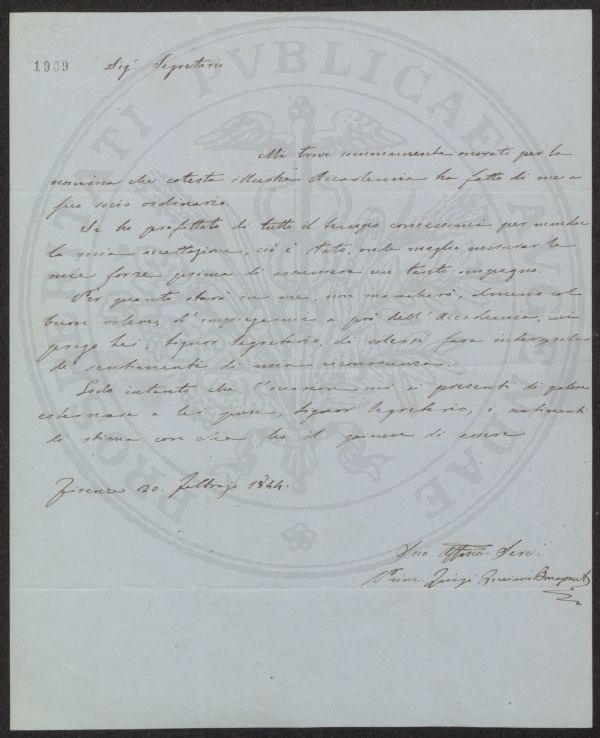 1909
Sigr Segretario
Mi trovo sommamente onorato per la
nomina che cotesta illustre Accademia ha fatto di me a
suo socio ordinario.
Se ho profittato di tutto il tempo concessomi per mandar
la mia accettazione, ciò è stato, onde meglio misurar le
mie forze prima di assumere un tanto impegno.
Per quanto starà in me, non mancherò, almeno col
buon volere, d'impiegarmi a prò dell'Accademia, cui
prego Lei, Signor Segretario, di volersi fare interprete
de' sentimenti di mia riconoscenza.
Lodo intanto che l'occasione mi si presenti di potere
esternare a Lei pure, Signor Segretario, i sentimenti
di stima con che ho il piacere di essere
Firenze 20. Febbrajo 1844.
Suo Affmo Serv.
Luigi Luciano Bonaparte
PROSPERITATI PUBLICAE AUGENDAE